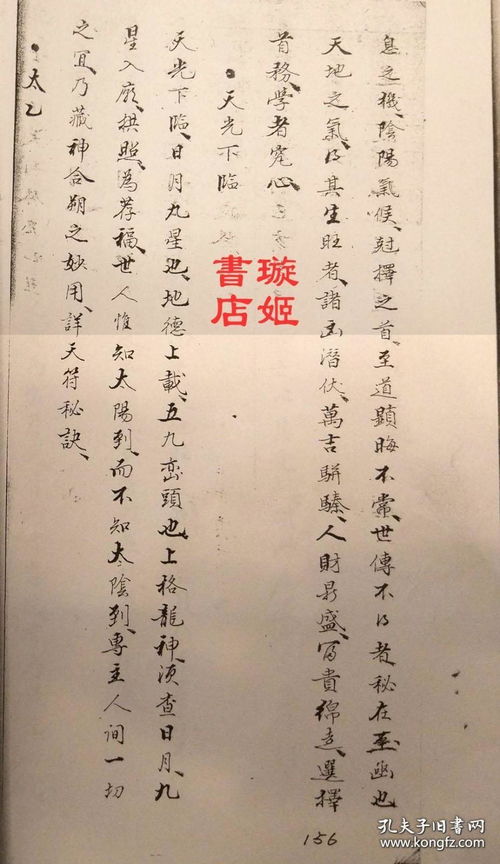 息之機、陰陽氣候、尅擇之首、至道顕晦不常、世傳不得者秘在至幽也
天地之氣、得其生旺者、諸凶潛伏、萬吉駢臻、人財昌盛、富貴綿遠、選擇
首務、學者究心、
•天光下臨
天光下臨、日月九星也、地德上載、五九巒頭也、上格龍神、須查日月、九
星入廟、拱照、為荐福、世人惟知太陽到、而不知太陰到、專主人间一切
之宜、乃藏神合朔之妙用、詳天符秘訣、
•太乙
璇姬
書店
156
孔夫子旧書网
www.kongfz.com